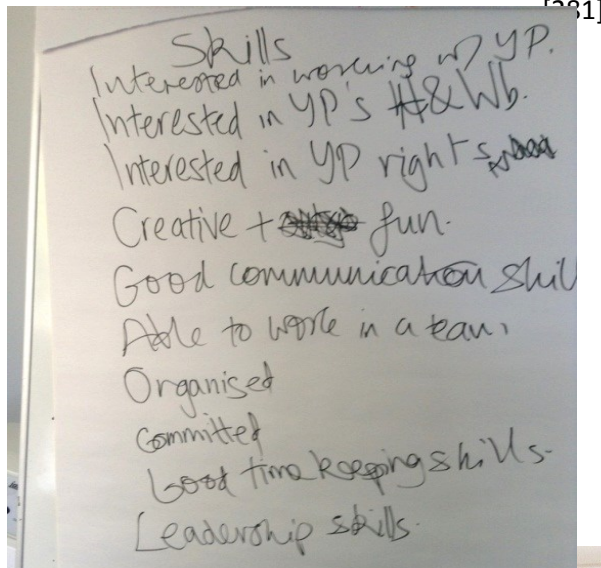 [281]
Skills
Interested in working w/ YP.
Interested in YP's H&Wb.
Interested in YP rights
Creative + fun.
Good communication skil
Able to work in a team.
Organised
Committed
Good time keeping skills.
Leadership skills.